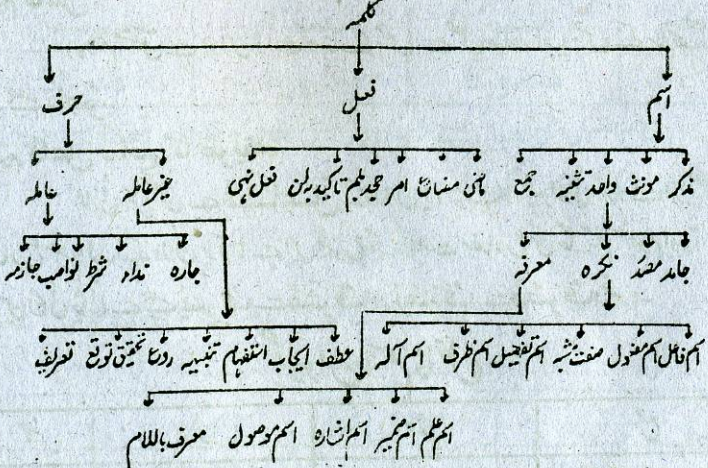 کلمہ
اسم فعل حرف
مذکر مونث واحد تثنیہ جمع ماضی مضارع امر جحد بلم تاکید بلن فعل نہی غیر عاملہ عاملہ
جامد مصدر نکرہ معرفہ جارہ نداء شرط نواصب جازمہ
اسم فاعل اسم مفعول صفت مشبہ اسم تفضیل اسم ظرف اسم آلہ عطف ایجاب استفہام تنبیہ ردع تحقیق توقع تعریف
اسم علم اسم ضمیر اسم اشارہ اسم موصول معرف باللام